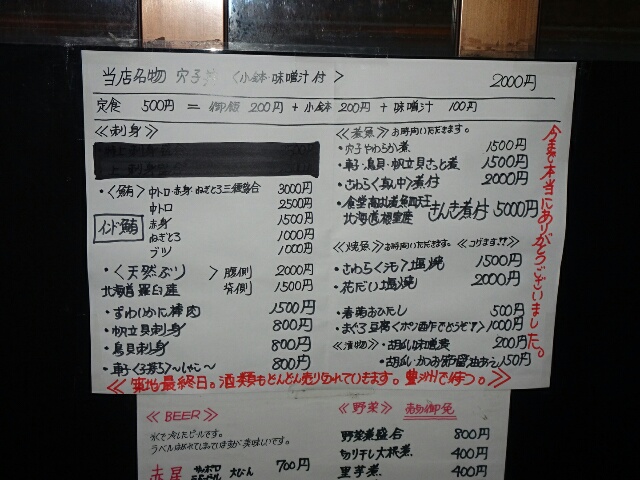 当店名物 穴子丼 〈小鉢・味噌汁付〉 2000円
定食 500円 = 御飯 200円 + 小鉢 200円 + 味噌汁 100円
≪刺身≫
・〈鮪〉中トロ・赤身・ねぎとろ三種盛合 3000円
中トロ 2500円
インド鮪
赤身 1500円
ねぎとろ 1000円
ブツ 1000円
・〈天然ぶり〉腹側 2000円
北海道羅臼産 背側 1500円
・ずわいかに棒肉 1500円
・帆立貝刺身 800円
・鳥貝刺身 800円
・〈子持ち〉〜しゃこ〜 800円
≪煮魚≫お時間いただきます。
・穴子やわらか煮 1500円
・鳥貝・帆立貝さっと煮 1500円
・さわら〈真中〉煮付 2000円
・食堂高はし煮魚四天王
北海道根室産 きんき煮付 5000円
≪焼魚≫お時間いただきます。≪コゲます!!≫
・さわら〈カマ〉塩焼 1500円
・花だい塩焼 2000円
・春菊おひたし 500円
・まぐろ豆腐〈ポン酢でどうぞ!〉 1000円
≪漬物≫・胡瓜味噌漬 200円
・胡瓜・かつお節醤油あえ 150円
今まで本当にありがとうございました。
≪築地最終日。酒類もどんどん売り切れていきます。豊洲で待つ。≫
≪BEER≫
氷で冷したビールです。
ラベルははがれてしまっていますが美味しいです。
赤星 サッポロ ラガービール 大びん 700円
≪野菜≫ 売切御免
野菜煮盛合 800円
切り干し大根煮 400円
里芋煮 400円